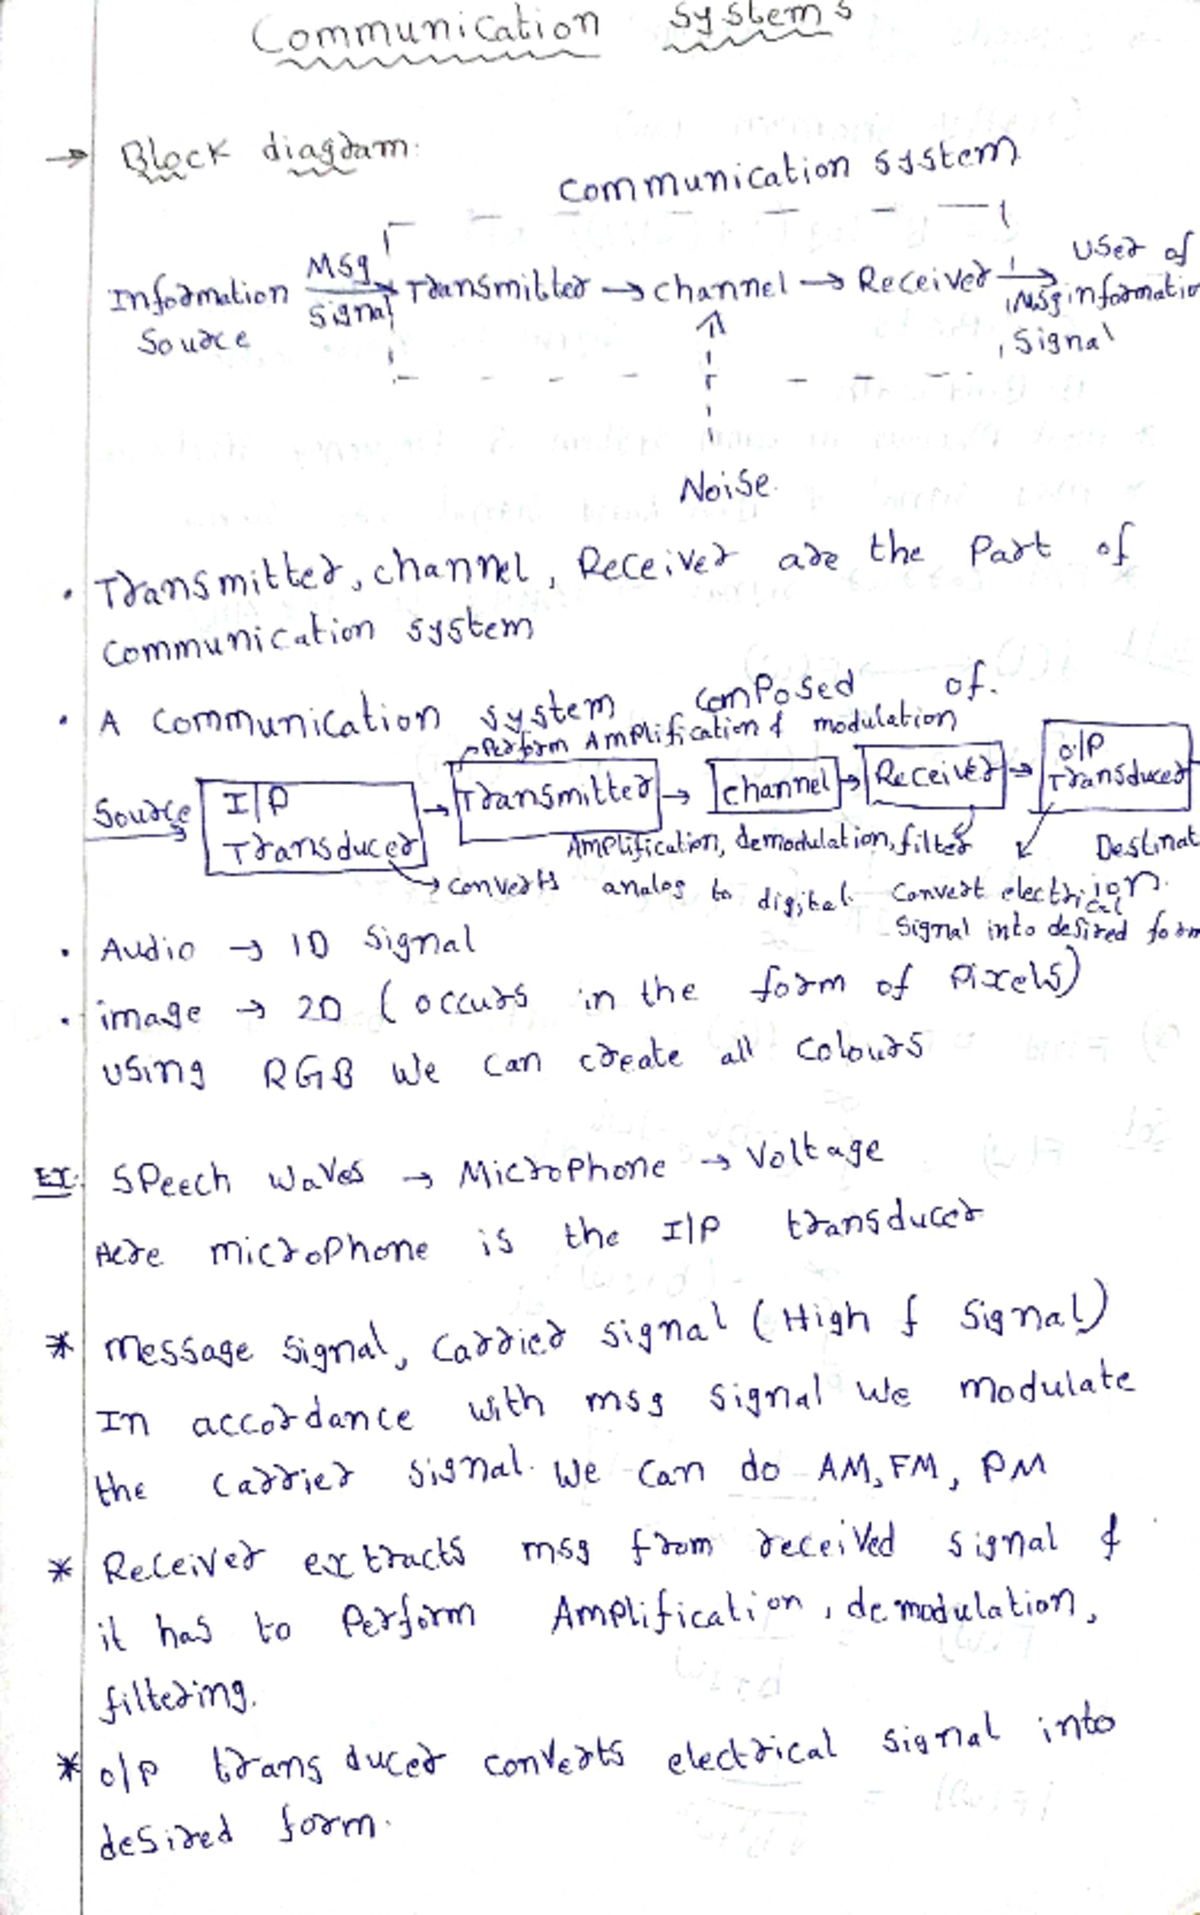 Communication Systems
→ Block diagram:
Communication system
Information Source
Msg signal
Transmitter → channel → Receiver →
Msg Signal
User of informatio
Noise.
• Transmitter, channel, Receiver are the Part of
Communication system
• A Communication system composed of.
Perform Amplification & modulation
Source → I/P Transducer → Transmitter → channel → Receiver → O/P Transducer
Amplification, demodulation, filter
Destination.
→ converts analog to digital.
Convert electrical
Signal into desired form
• Audio → 1D Signal
• image → 2D (occurs in the form of Pixels)
using RGB we can create all colours
EX: Speech waves → Microphone → Voltage
Here microphone is the I/P transducer
* message signal, Carrier signal (High f signal)
In accordance with msg signal we modulate
the carrier signal. We can do AM, FM, PM
* Receiver extracts msg from received signal &
it has to Perform Amplification, demodulation,
filtering.
* O/P transducer converts electrical signal into
desired form.